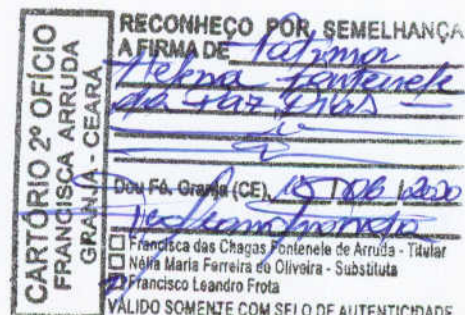 CARTÓRIO 2º OFÍCIO
FRANCISCA ARRUDA
GRANJA - CEARÁ
RECONHEÇO POR SEMELHANÇA
A FIRMA DE Fatima
Helena Fontenele
da Paz Dias
Dou Fé. Granja (CE), 15 / 06 / 2020
☐ Francisca das Chagas Fontenele de Arruda - Titular
☐ Nélia Maria Ferreira de Oliveira - Substituta
Francisco Leandro Frota
VÁLIDO SOMENTE COM SELO DE AUTENTICIDADE